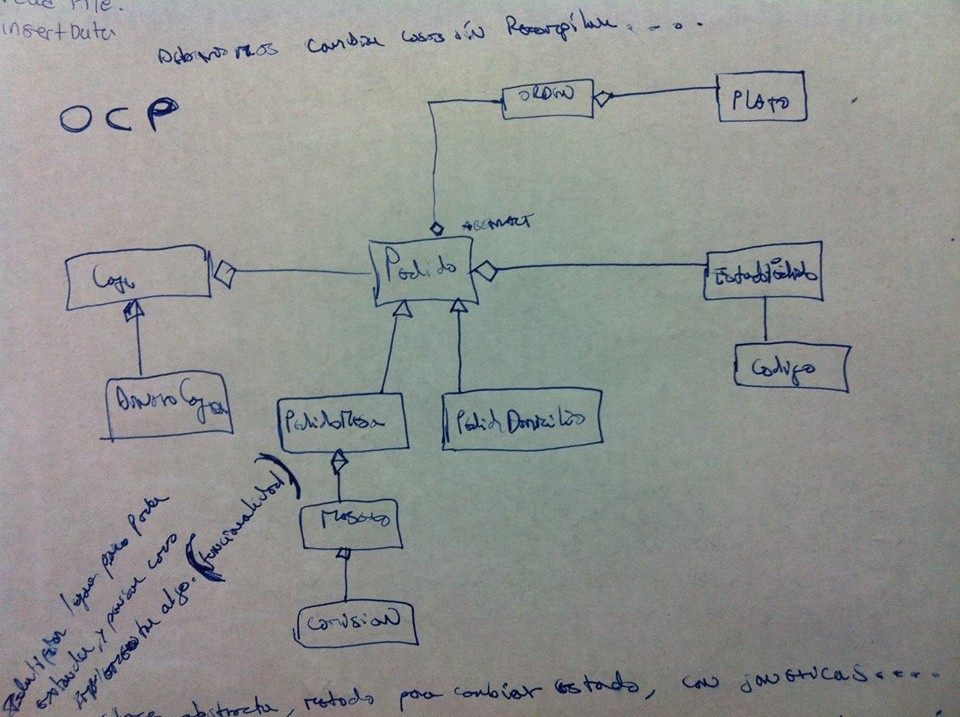 File.
insertData
cambiar cosas sin Recompilar....
OCP
ORDEN
PLATO
Pedido
Caja
EstadoPedido
Codigo
PedidoMesa
Pedido Domicilio
Mesero
comision
para Poder
extender, y pensar como
implementar algo. (funcionalidad)
abstracta, metodo para cambiar estado, con genericas....